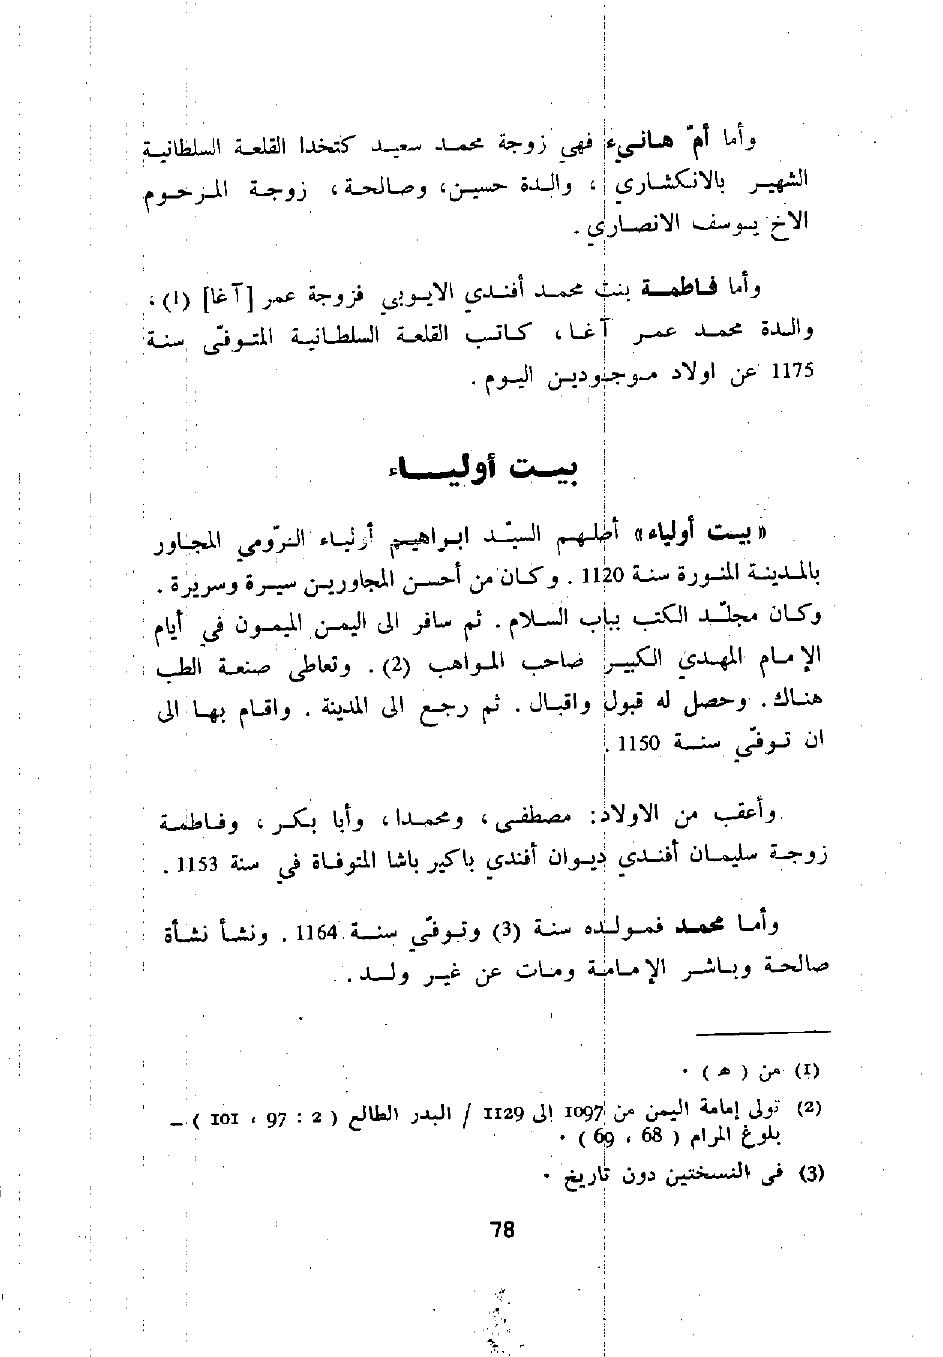 وأما أمّ هانيء فهي زوجة محمد سعيد كتخدا القلعة السلطانية
الشهير بالانكشاري ، والدة حسين، وصالحة، زوجة المرحوم
الاخ يوسف الانصاري .
وأما فاطمة بنت محمد أفندي الايوبي فزوجة عمر [آغا] (1) ،
والدة محمد عمر آغا، كاتب القلعة السلطانية المتوفّى سنة
1175 عن اولاد موجودين اليوم .
بيت أولياء
« بيت أولياء» أصلهم السيّد ابراهيم أولياء الرّومي المجاور
بالمدينة المنورة سنة 1120 . وكان من أحسن المجاورين سيرة وسريرة .
وكان مجلّد الكتب بباب السلام . ثم سافر الى اليمن الميمون في أيام
الإمام المهدي الكبير صاحب المواهب (2) . وتعاطى صنعة الطب
هناك . وحصل له قبول واقبال . ثم رجع الى المدينة . واقام بها الى
ان توفّي سنة 1150 .
وأعقب من الاولاد: مصطفى، ومحمدا، وأبا بكر ، وفاطمة
زوجة سليمان أفندي ديوان أفندي باكير باشا المتوفاة في سنة 1153 .
وأما محمد فمولده سنة (3) وتوفّي سنة 1164 . ونشأ نشأة
صالحة وباشر الإمامة ومات عن غير ولد .
(1) من ( ه ) .
(2) تولى إمامة اليمن من 1097 الى 1129 / البدر الطالع ( 2 : 97 ، 101 ) _
بلوغ المرام ( 68 ، 69 ) .
(3) في النسختين دون تاريخ .
78